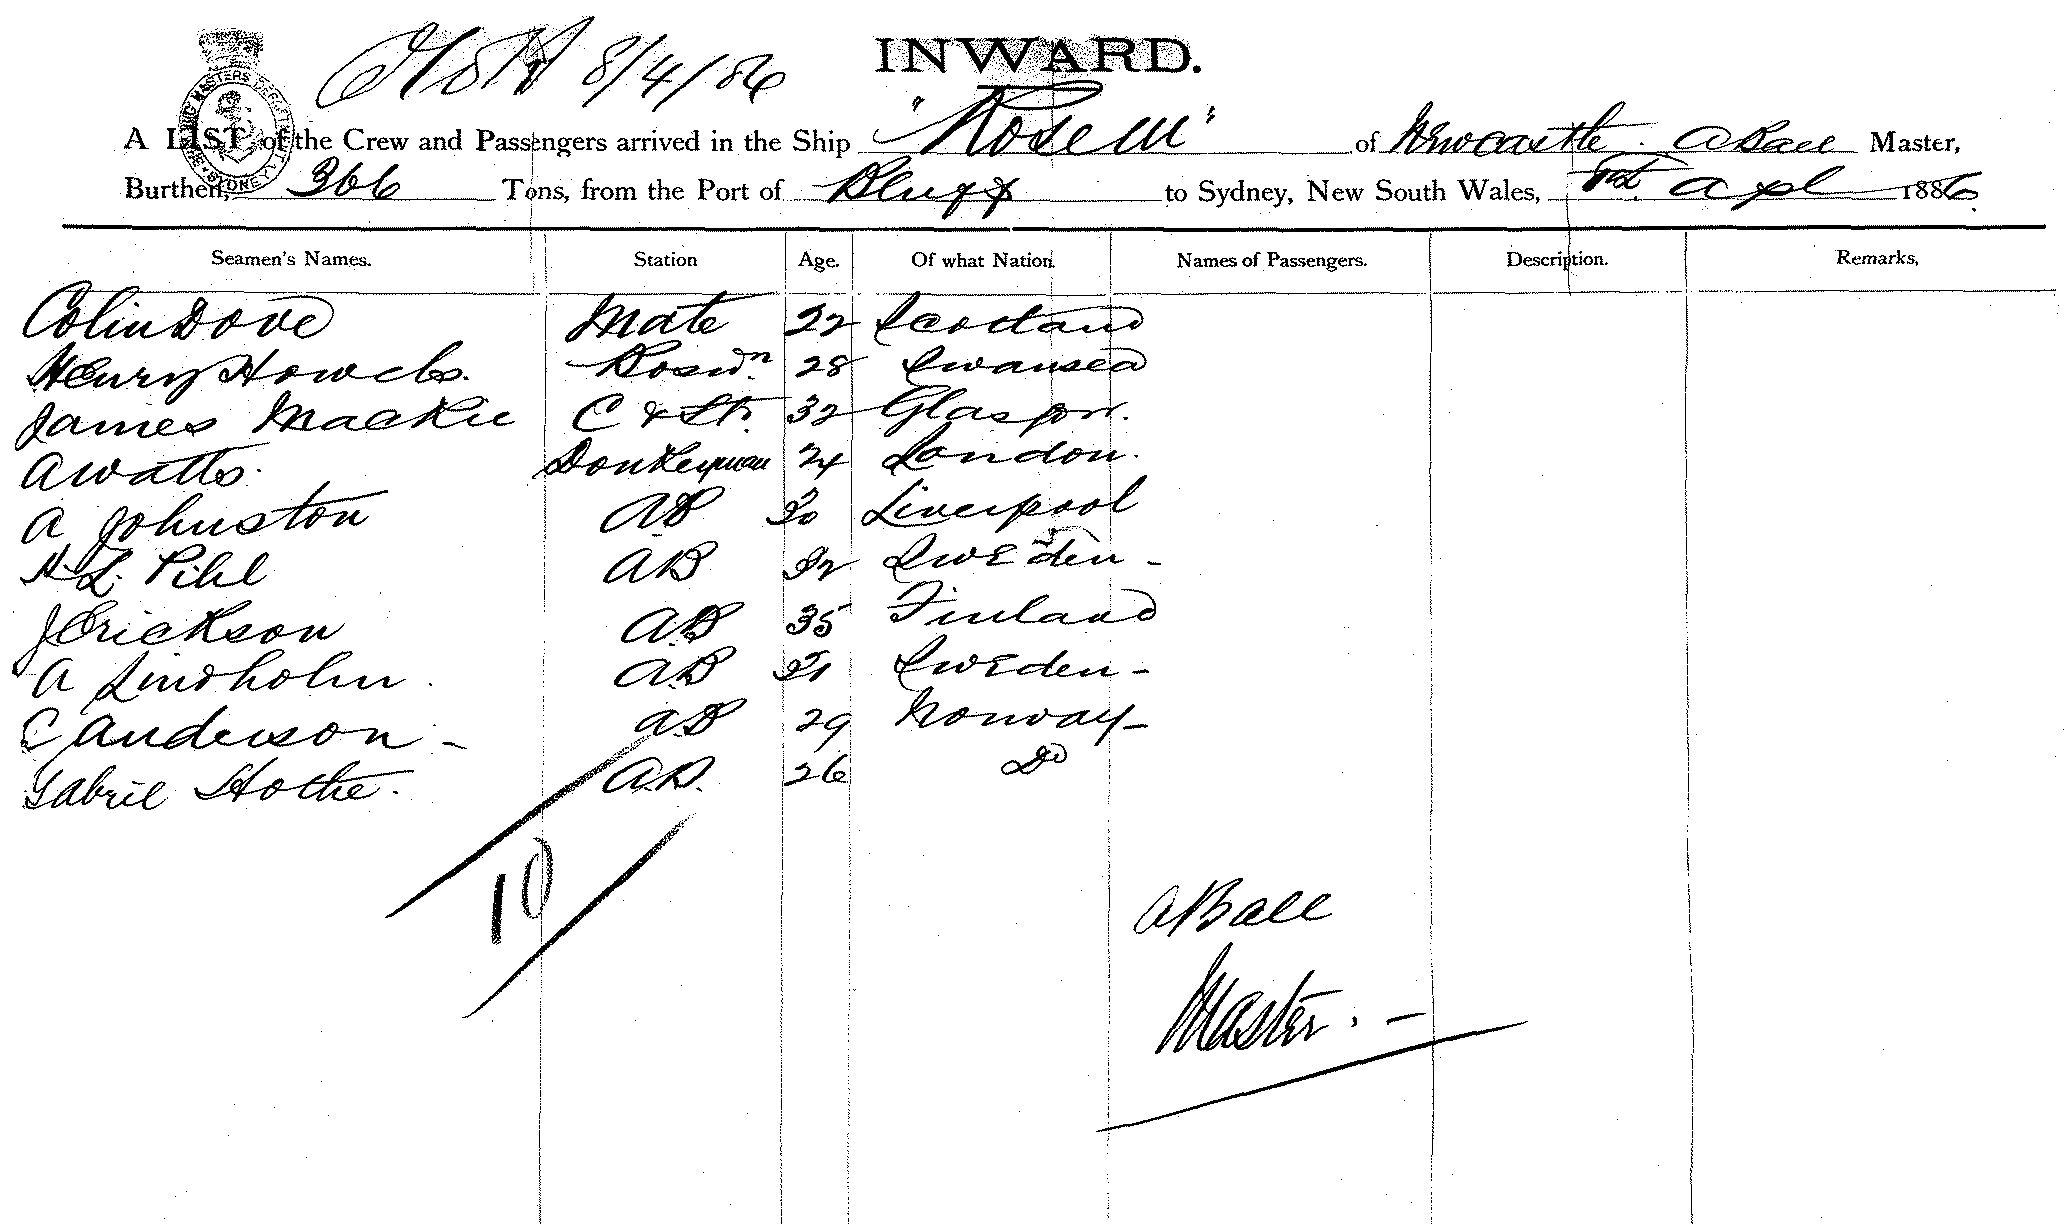 8/4/86
INWARD.
A LIST of the Crew and Passengers arrived in the Ship "Rose M" of Newcastle. A Ball Master,
Burthen, 366 Tons, from the Port of Bluff to Sydney, New South Wales, Apl 1886.
Seamen's Names. Station Age. Of what Nation. Names of Passengers. Description. Remarks,
Colin Dove Mate 22 Scotland
Henry Howels. Bosw.n 28 Swansea
James Mackie C & St. 32 Glasgow.
A Watts. Donkeyman 24 London.
A Johnston AB 30 Liverpool
Pihl AB 32 Sweden -
J Erickson AB 35 Finland
A Lindholm. AB 31 Sweden -
C Anderson - AB 29 Norway -
Gabril Hothe. AB. 26 Do
10
A Ball
Master. -